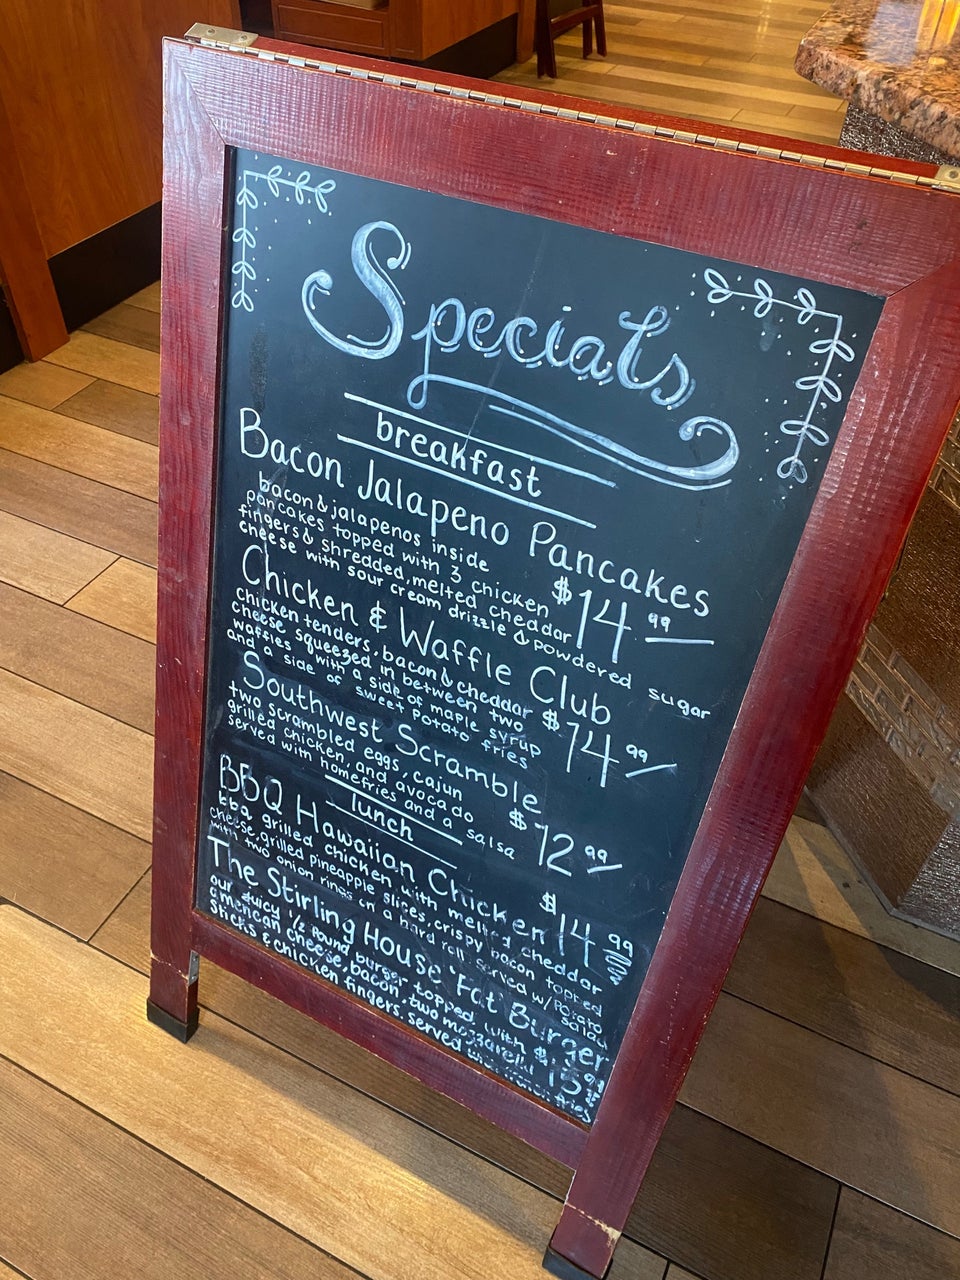 Specials
breakfast
Bacon Jalapeno Pancakes
bacon & jalapenos inside
pancakes topped with 3 chicken
fingers & shredded, melted cheddar
cheese with sour cream drizzle & powdered sugar
$14.99
Chicken & Waffle Club
chicken tenders, bacon & cheddar
cheese squeezed in between two
waffles with a side of maple syrup
and a side of sweet potato fries
$14.99
Southwest Scramble
two scrambled eggs, cajun
grilled chicken, and avocado
served with homefries and a salsa
$12.99
lunch
BBQ Hawaiian Chicken
bbq grilled chicken with melted cheddar
cheese, grilled pineapple slices, crispy bacon topped
with two onion rings on a hard roll served w/ potato salad
$14.99
The Stirling House Fat Burger
our juicy 1/2 pound burger topped with
american cheese, bacon, two mozzarella
sticks & chicken fingers. served with fries
$15.99